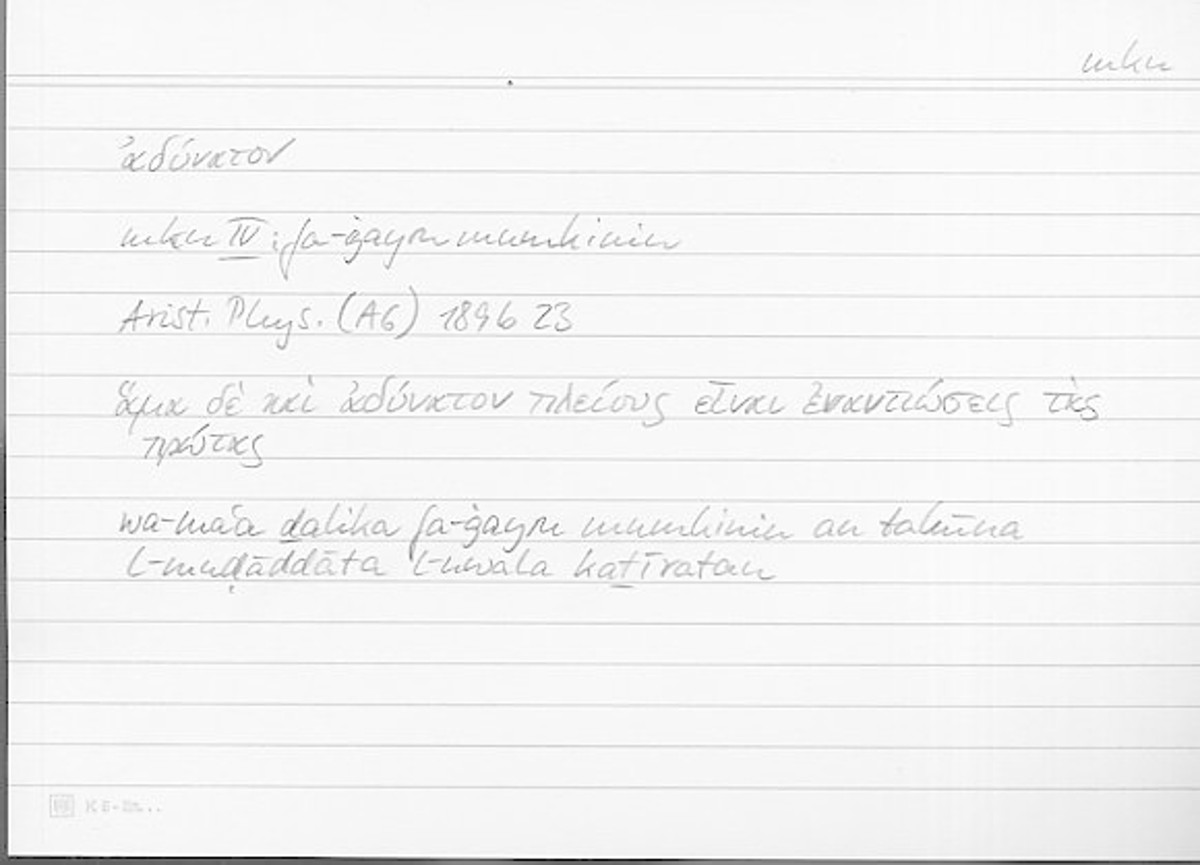 mkn
ἀδύνατον
mkn IV: fa-ġayru mumkinin
Arist. Phys. (A6) 189b 23
ἅμα δὲ καὶ ἀδύνατον πλείους εἶναι ἐναντιώσεις τὰς
πρώτας
wa-maʿa ḏalika fa-ġayru mumkinin an takūna
l-muḍāddāta l-uwala kaṯīratan